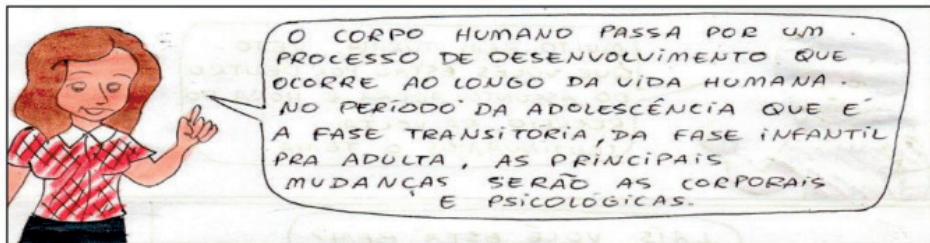 O CORPO HUMANO PASSA POR UM
PROCESSO DE DESENVOLVIMENTO QUE
OCORRE AO LONGO DA VIDA HUMANA.
NO PERÍODO DA ADOLESCÊNCIA QUE É
A FASE TRANSITÓRIA, DA FASE INFANTIL
PRA ADULTA, AS PRINCIPAIS
MUDANÇAS SERÃO AS CORPORAIS
E PSICOLÓGICAS.